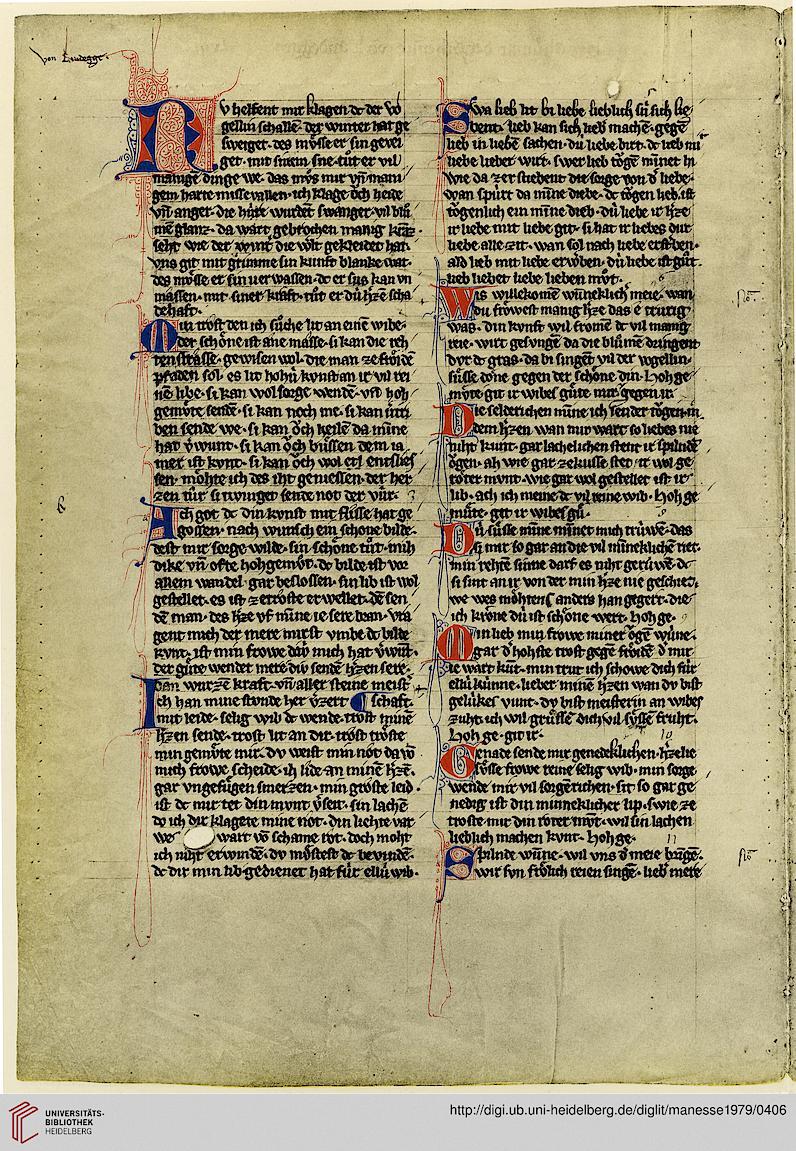 von Landegge.
Nv helfent mir klagen dc der vo
gellin schallē. der winter hat ge
sweiget. des mvͦsse er sin gevei
get. mit sinem sne. tůt er vil
manigē dinge we. das mvͦs mir vñ mani
gem harte missevallen. ich klage ŏch heide
vñ anger. die hůte wurdent swanger. vil blů
mē glanz. da wart gebrochen manig kranz.
seht wie der wint die welt gekleidet hat.
vns git mit grimme sin kunft blanke wat.
des mvͦsse er sin verwassen. dc er sus kan vn
massen. mit siner kraft. tůt er dů h'zē scha
dehaft.
Min trost den ich sůche lit an einē wibe.
der schône ist ane masse. si kan die reh
ten strasse. gewisen wol. die man ze frôide
pfaden sol. es lit hohů kvnst an ir vil rei
nē libe. si kan wol sorge wendē. vñ hoh
gemvͦte sendē. si kan noch me. si kan v'tri
ben sende we. si kan ŏch heilē da minne
hat v'wunt. si kan ŏch bůssen dem ia
mer ist kvnt. si kan ŏch wol entslies
sen. môhte ich des iht geniessen. der her
zen tůr. si twinget sende not der vůr.
Ach got dc din kvnst mit flisse hat ge
gossen. nach wunsch ein schone bilde.
dest mir sorge wilde. sin schône tůt mih
dike vñ ofte hohgemvͦt. dc bilde ist vor
allem wandel gar beslossen. sin lib ist wol
gestellet. es ist zetroste erwellet. dē sen
dē man. des h'ze vf minne ie sere bran. vra
gent mich der mere mirst vmbe dc bilde
kvnt. ist min frowe dů mich hat v'wůt.
der gůte wendet mere dů sendē h'zen sere.
dan wurzē kraft. vñ aller steine meist'
Ich han mine stvnde her v'zert ¶ schaft.
mit leide. selig wib dc wende. trôst minē
h'zen sende. trost lit an dir. trôst trôste
min gemvͦte mir. dv weist min not da vō
mich frowe scheide. ih lide an minē h'zē.
gar vngefůgen smerzen. min grôste leid.
ist dc mir tet din mvnt v'seit. sin lachē
do ich dir klagete mine not. din liehte var
we wart vō schame rot. doch moht
ich niht erwindē. dv mvͦstest dc bevindē.
dc dir min lib gedienet hat fůr ellů wib.
Swa lieb lit bi liebe lieblich sů sich lie
bent. lieb kan sich lieb machē. gegē
lieb in liebē sachen. dů liebe birt. dc lieb mit
liebe lieber wirt. swer lieb tŏgē minet hi
wie da zerstiebent die sorge von d' liebe.
wan spůrt da minne diebe. dc tŏgen lieb. ist
tŏgenlich ein minne dieb. dů liebe ir h'ze
ir liebe mit liebe git. si hat ir liebes dur
liebe alle zit. wan sol nach liebe ersterben.
ald lieb mit liebe erwerben. dů liebe ist gůt.
lieb liebet liebe lieben mvͦt.
Wis willekomē wůneklich' meie. wan
du frowest manig h'ze das e trurig
was. din kvnft wil fromē dc vil manig
reie. wirt gesvngē da die blůmē dringent
dvr dc gras. da bi singēt vil der vogellin.
sůsse dône gegen der schône din. Hoh ge
mvͦte git ir wibes gůte mir gegen ir.
Die selderichen minne ich sender tŏgen in
dem h'zen wan mir wart so liebes nie
niht kunt. gar lachelichen stent ir spilndē
ŏgen. ah wie gar zekusse stet ir wol ge
rôter mvnt. wie gar wol gestellet ist ir
lib. ach ich meine dc vil reine wib. Hoh ge
mvͦte. git ir wibes gů.
Dů sůsse minne minnet mich mit trůwē. das
si mir so gar an die vil minneklichē riet.
min rehtē sinne darf es niht gerůwē dc
si sint an ir von der min h'ze nie geschiet.
we wes môhtens anders han gegert. die
ich krône dů ist schône wert. Hoh ge.
Min lieb min frowe miner ŏgē wůne.
gar d' hohste trost gegē frôidē d' mir
ie wart kůt. min trut ich schowe dich fůr
ellů kůnne. lieber minē h'zen wan dv bist
gelůkes vunt. dv bist meisterin an wibes
zuht. ich wil grůssē dich vil sůssē fruht.
Hoh ge. git ir.
Genade sende mir genedeklichen. h'zelie
sůsse frowe reine selig wib. min sorge
wende mir vil sorgērichen. sit so gar ge
nedig ist din minneklicher lip. swie ze
troste mir din roter mvͦt. wil sin lachen
lieblich machen kvnt. Hoh ge.
Spilnde wůne. wil vns d' meie bringē.
wir svn frôlich reien singē. lieb' mere
UNIVERSITÄTS-
BIBLIOTHEK
HEIDELBERG
http://digi.ub.uni-heidelberg.de/diglit/manesse1979/0406